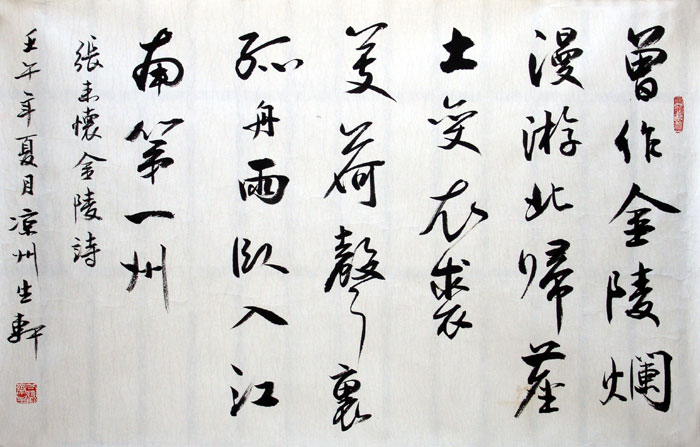 曾作金陵爛
漫游北歸塵
土變衣裘
芰荷聲裏
孤舟雨臥入江
南第一州
張耒懷金陵詩
壬午年夏月凉州生軒